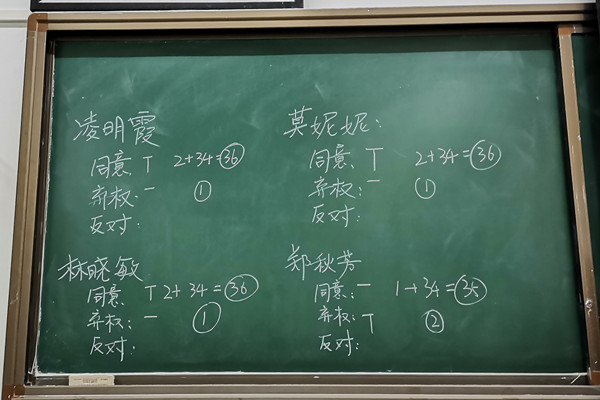 凌明霞
同意: T 2+34=36
弃权: 一 1
反对:
莫妮妮:
同意: T 2+34=36
弃权: 一 1
反对:
林晓敏
同意: T 2+34=36
弃权: 一 1
反对:
郑秋芳
同意: 一 1+34=35
弃权: T 2
反对: